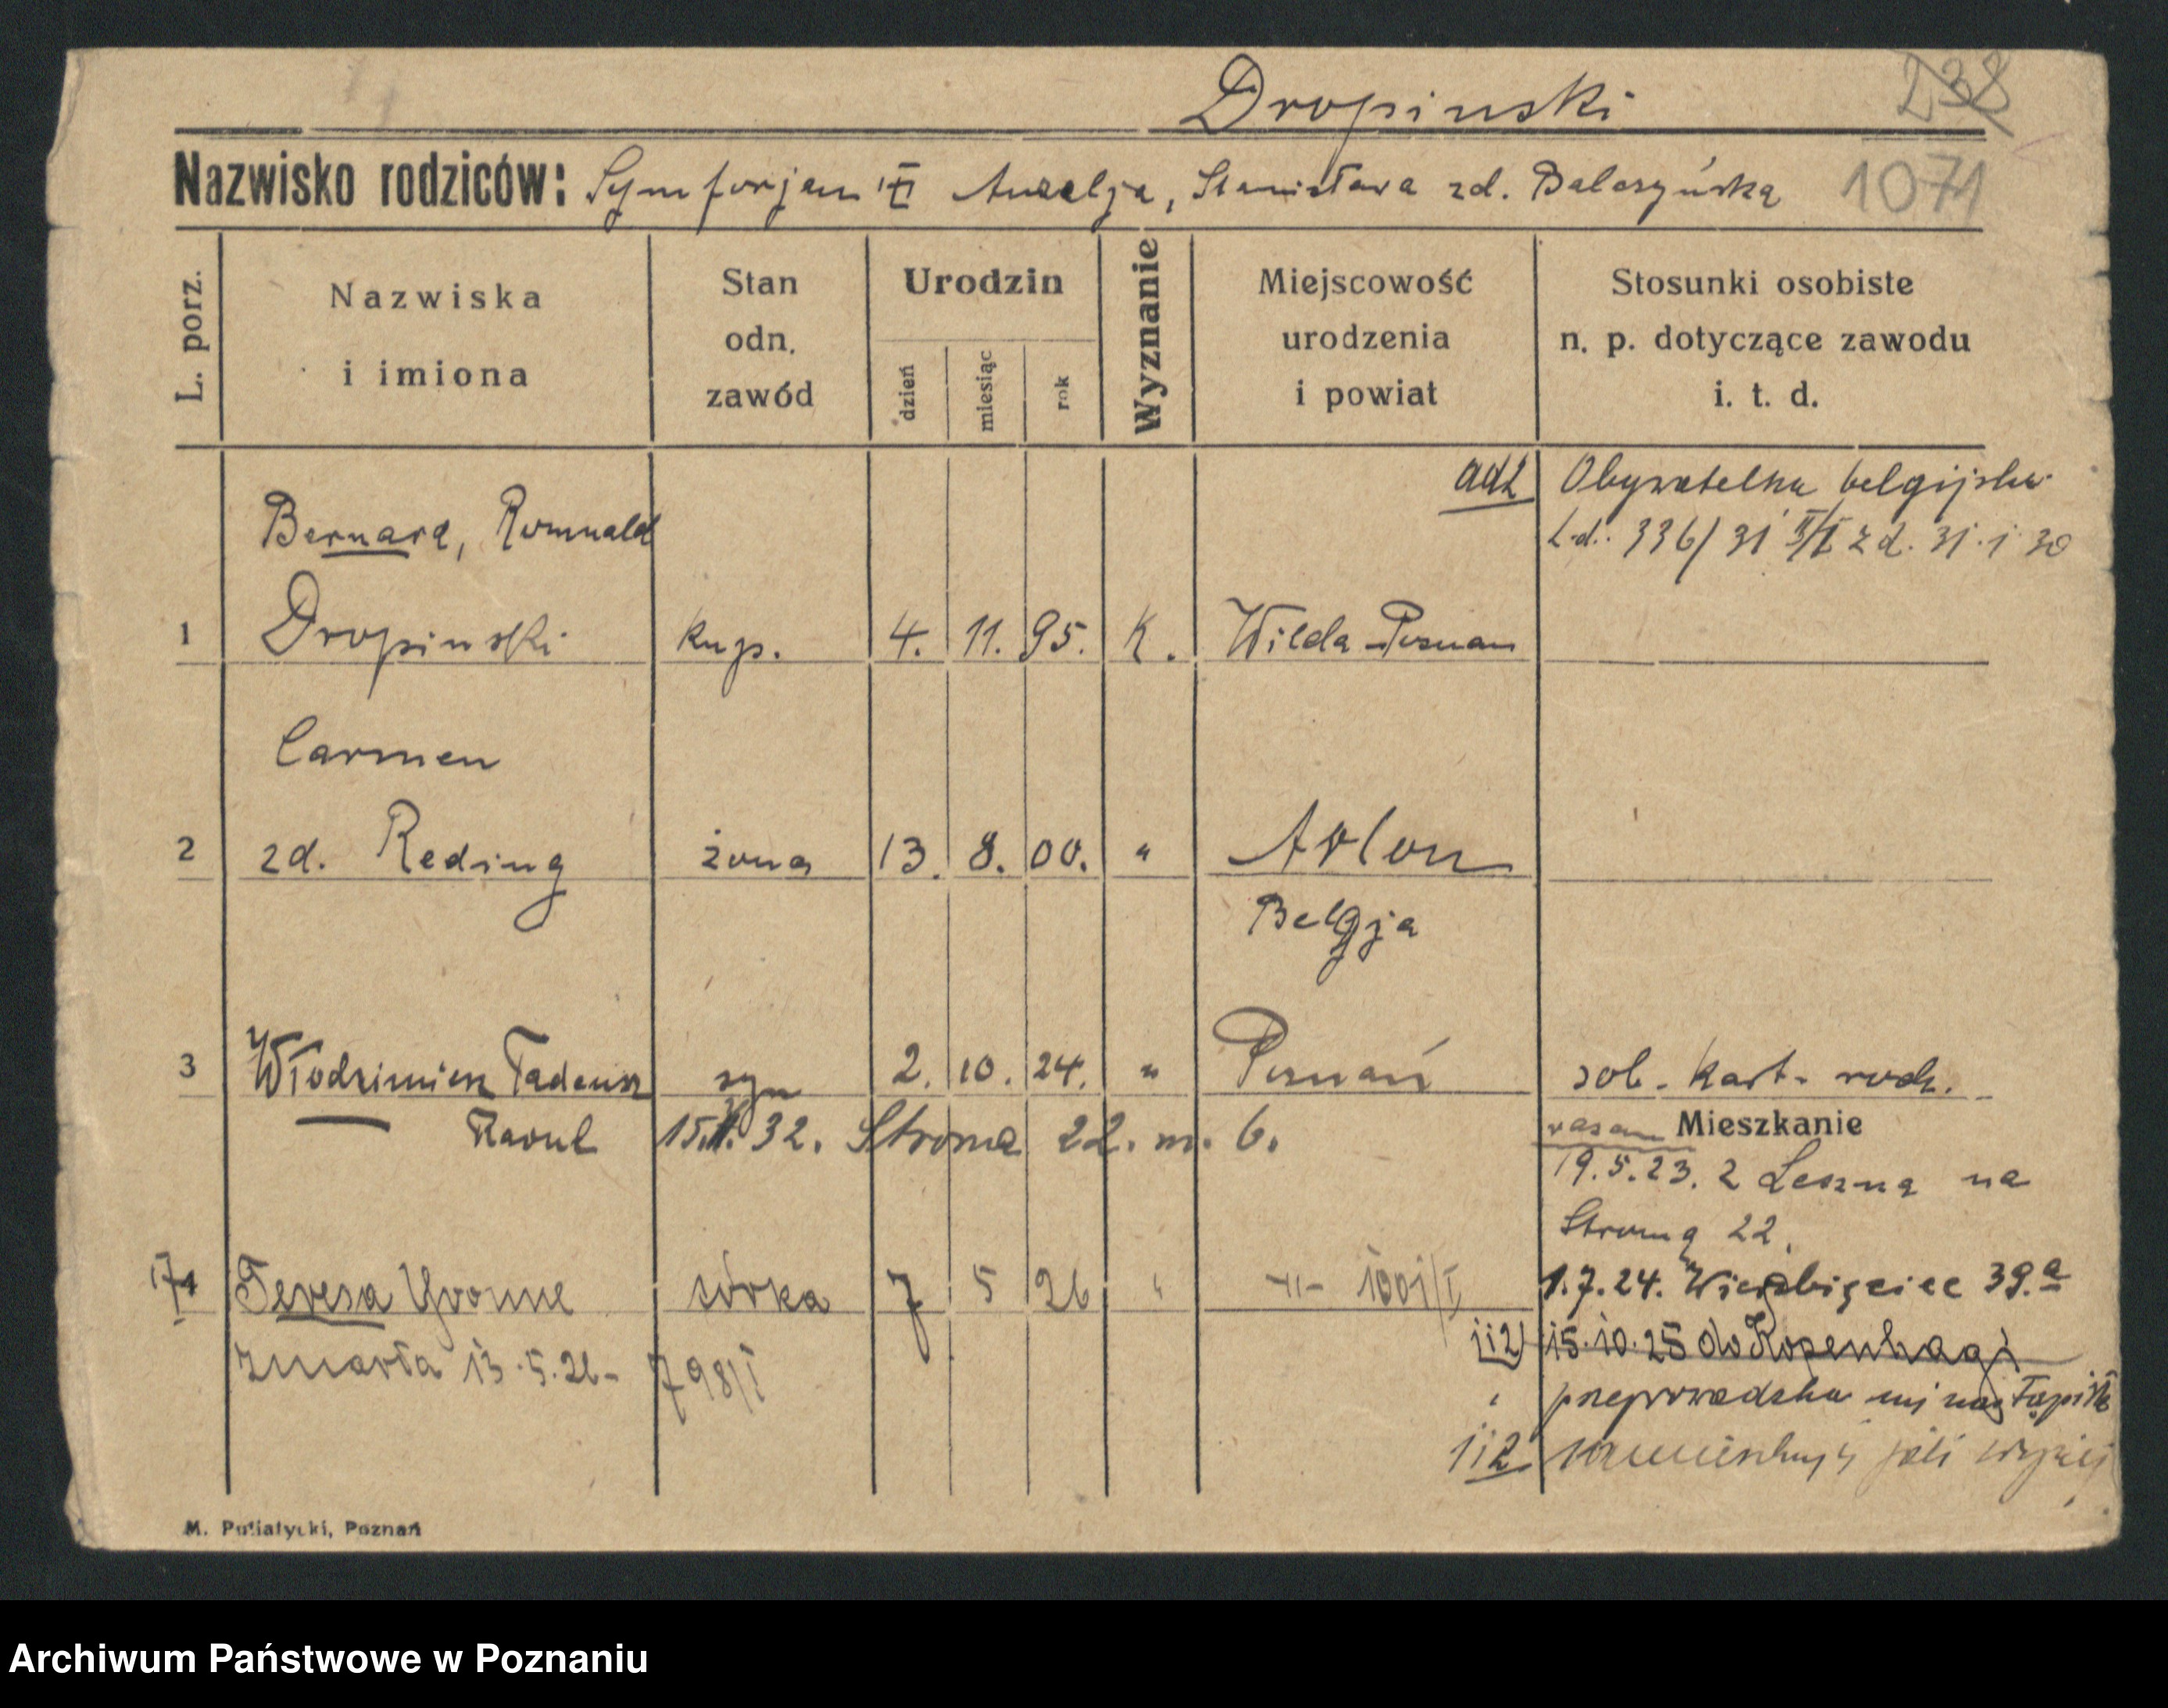 Dropinski
238
Nazwisko rodziców: Symforjan Anzelja, Stanisława zd. Baloszyńska
1071
L. porz.
Nazwiska
i imiona
Stan
odn.
zawód
Urodzin
dzień
miesiąc
rok
Wyznanie
Miejscowość
urodzenia
i powiat
Stosunki osobiste
n. p. dotyczące zawodu
i. t. d.
ad 2 Obywatelka belgijska
L.d. 336/31 z d. 31.1.30
Bernard, Romuald
1 Dropinski kup. 4. 11. 95. K. Wilda-Poznan
Carmen
2 zd. Reding żona 13. 8. 00. " Arlon
Belgja
3 Włodzimierz Tadeusz syn 2. 10. 24. " Poznań zob. kart. rodz.
Raoul 15. 32. Stroma 22. m. 6.
Mieszkanie
19.5.23. z Leszna na
Stromą 22.
4 Teresa Yvonne córka 7 5 26 " -"- 1001/I
1.7.24. Wierzbięcice 39.a
1i2) 15.10.25 do Kopenhagi
zmarła 13.5.26- 798/I
przeprowadzka nie nastąpiła
1i2 zamieszkują jak wyżej
M. Putiatycki, Poznań
Archiwum Państwowe w Poznaniu